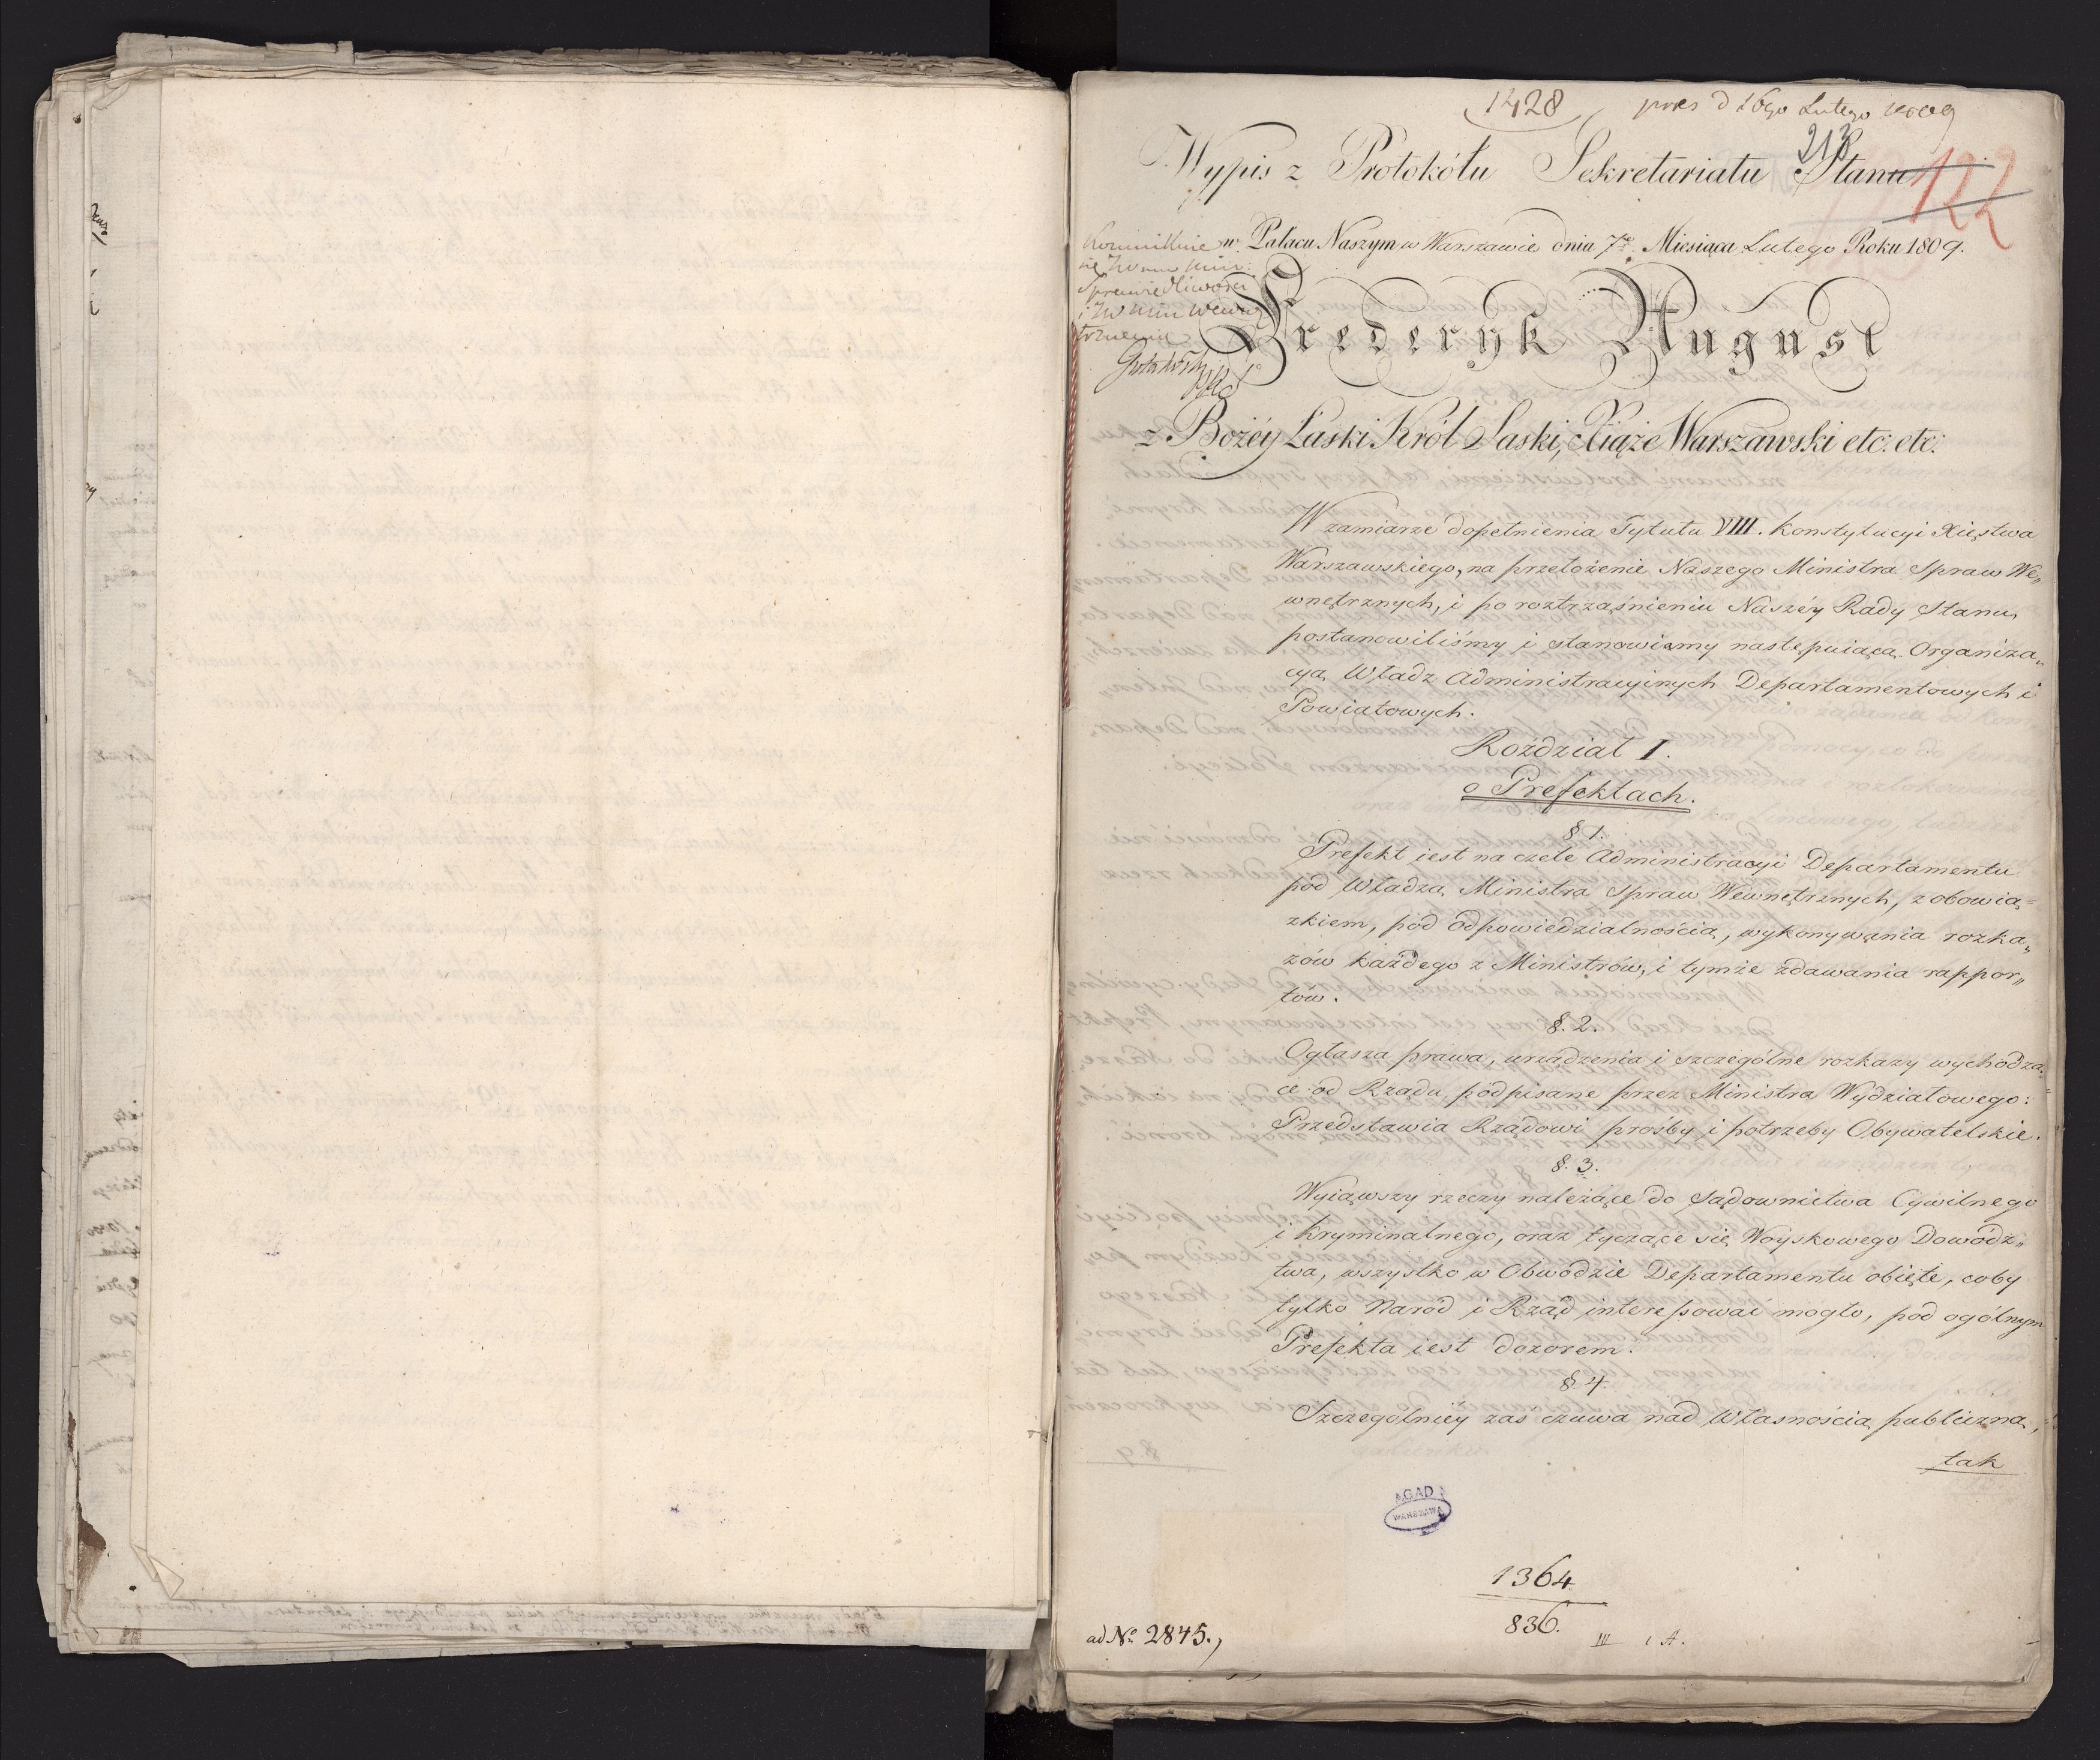 1428
pres d 16go Lutego 1809
213
122
Wypis z Protokółu Sekretariatu Stanu
w Pałacu Naszym w Warszawie dnia 7go Miesiąca Lutego Roku 1809.
Fryderyk August
z Bożéy Łaski Król Saski, Xiąże Warszawski etc: etc:
W zamiarze dopełnienia Tytułu VIII. Konstytucyi Xięstwa
Warszawskiego, na przełożenie Naszego Ministra Spraw We„
wnętrznych, i po roztrząśnieniu Naszéy Rady Stanu,
postanowiliśmy i stanowiemy następuiącą Organiza„
cyą Władz Administracyinych Departamentowych i
Powiatowych.
Rozdział I.
o Prefektach.
§ 1.
Prefekt iest na czele Administracyi Departamentu
pod Władzą Ministra Spraw Wewnętrznych, z obowią=
zkiem, pod odpowiedzialnością, wykonywania rozka„
zów każdego z Ministrów, i tymże zdawania rappor„
tów.
§. 2.
Ogłasza prawa, urządzenia i szczególne rozkazy wychodzą=
ce od Rządu, podpisane przez Ministra Wydziałowego:
Przedstawia Rządowi prośby i potrzeby Obywatelskie.
§. 3.
Wyiąwszy rzeczy należące do Sądownictwa Cywilnego
i Kryminalnego, oraz tyczące się Woyskowego Dowódz„
twa, wszystko w Obwodzie Departamentu obięte, coby
tylko Naród i Rząd interessować mogło, pod ogólnym
Prefekta iest dozorem.
§. 4.
Szczególniéy zaś czuwa nad Własnością publiczną,
tak
AGAD
WARSZAWA
1364
836.
III 1 A.
ad No 2845.,